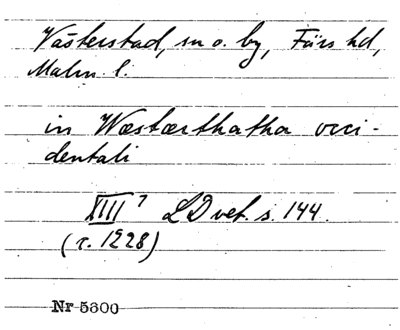 Västerstad, sn o. by, Färs hd,
Malm. l.
in Wæstærsthatha occi-
dentali
XIIII 7 LD vet. s. 144.
(r. 1228)
Nr 5300